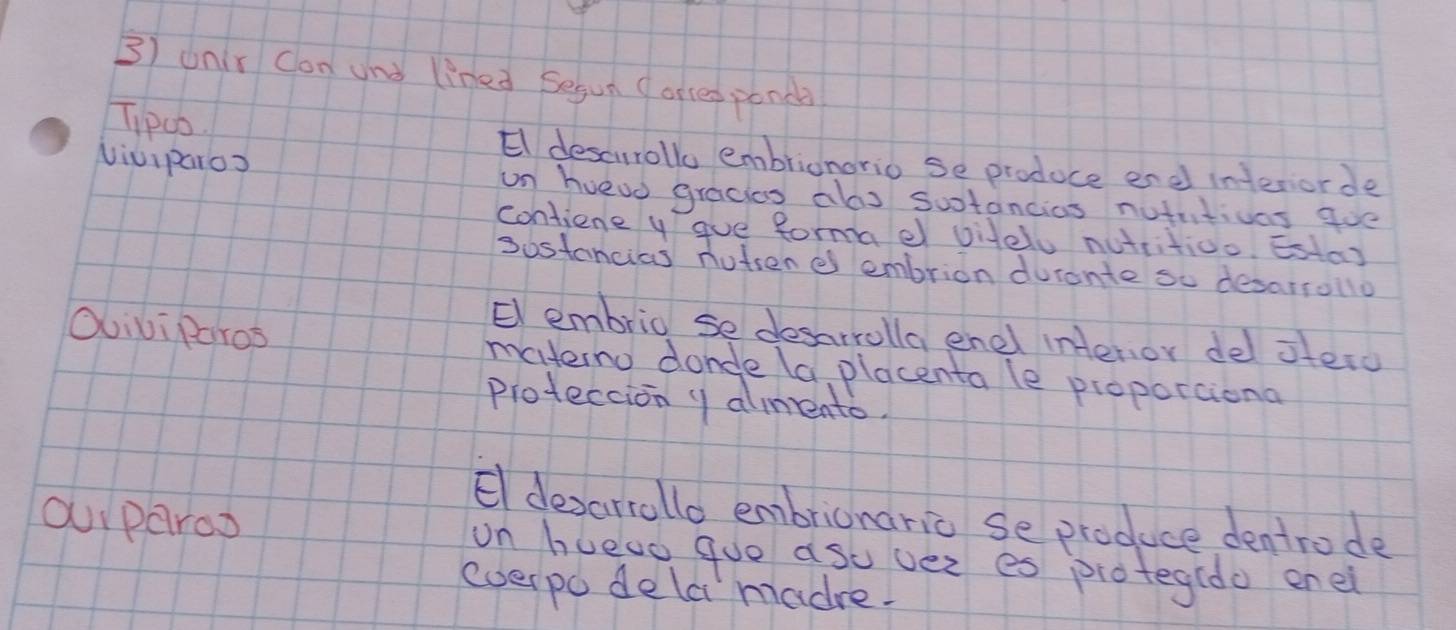 3) unir con una linea segun corresponda
Tipos.
Viviparos
El desarrollo embrionario se produce en el interior de
un huevo gracias alas sustancias nutritivas que
contiene y que forma el vitelo nutritivo. Estas
sustancias nutren el embrion durante su desarrollo
Oviviparos
El embrio se desarrolla enel interior del útero
materno donde la placenta le proporciona
protección y alimento.
oviparos
El desarrollo embrionario se produce dentro de
un huevo que asu vez es protegido enel
cuerpo dela madre.